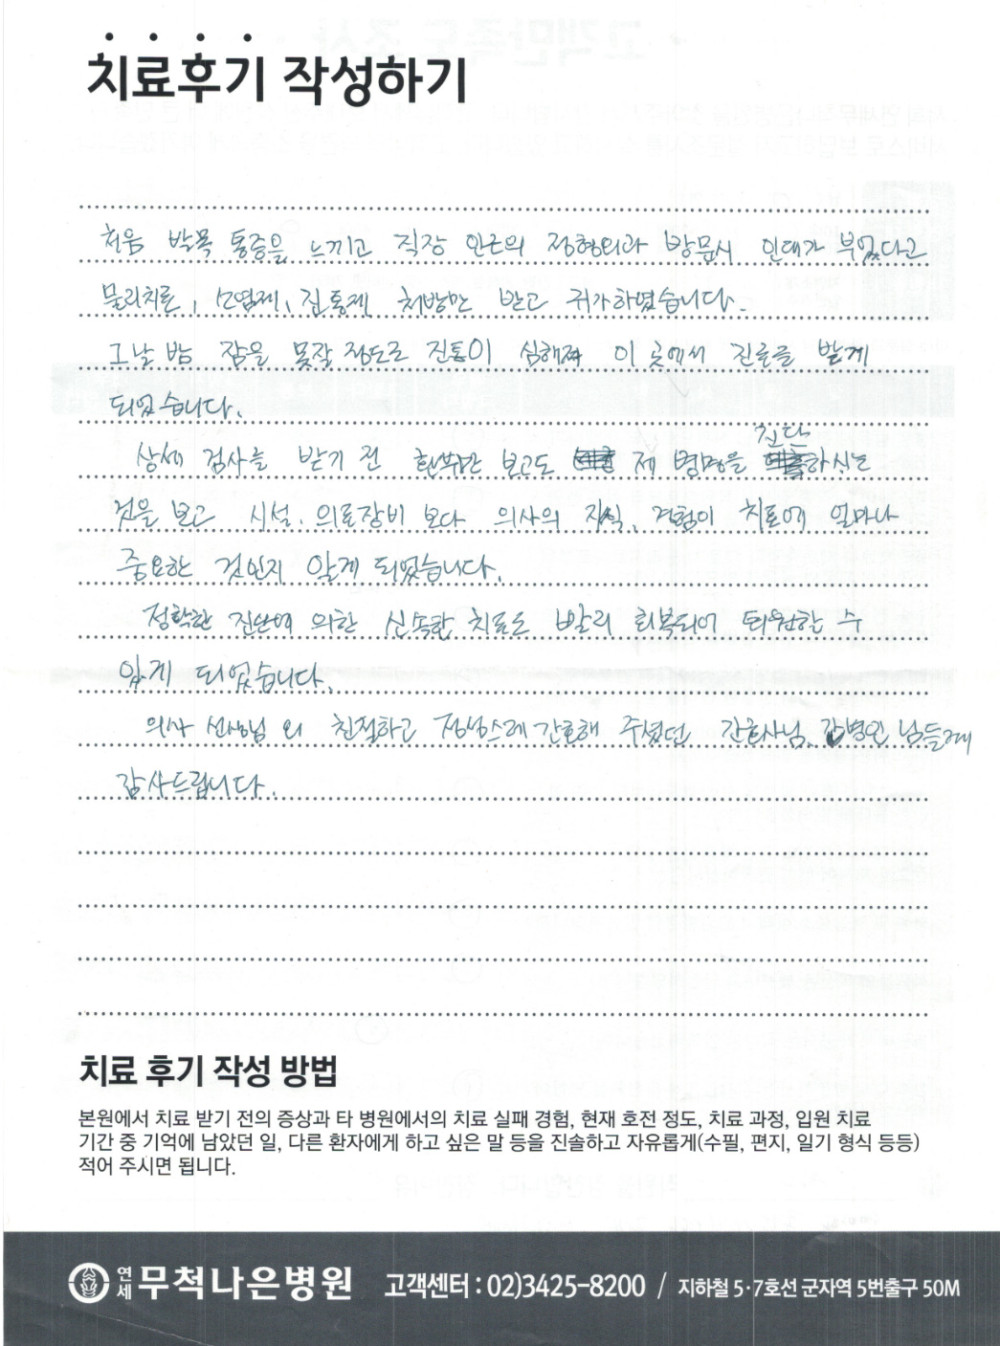 치료후기 작성하기
처음 발목 통증을 느끼고 직장 인근의 정형외과 방문시 인대가 부었다고
물리치료, 소염제, 진통제 처방만 받고 귀가하였습니다.
그날 밤 잠을 못잘 정도로 진통이 심해져 이 곳에서 진료를 받게
되었습니다.
상세 검사를 받기 전 보고도 제 병명을 진단하시는
것을 보고 시설, 의료장비 보다 의사의 지식, 경험이 치료에 얼마나
중요한 것인지 알게 되었습니다.
정확한 진단에 의한 신속한 치료로 빨리 회복되어 퇴원할 수
있게 되었습니다.
의사 선생님 외 친절하고 정성스레 간호해 주셨던 간호사님, 간병인 님들께
감사드립니다.
치료 후기 작성 방법
본원에서 치료 받기 전의 증상과 타 병원에서의 치료 실패 경험, 현재 호전 정도, 치료 과정, 입원 치료
기간 중 기억에 남았던 일, 다른 환자에게 하고 싶은 말 등을 진솔하고 자유롭게(수필, 편지, 일기 형식 등등)
적어 주시면 됩니다.
연세 무척나은병원 고객센터 : 02)3425-8200 / 지하철 5·7호선 군자역 5번출구 50M